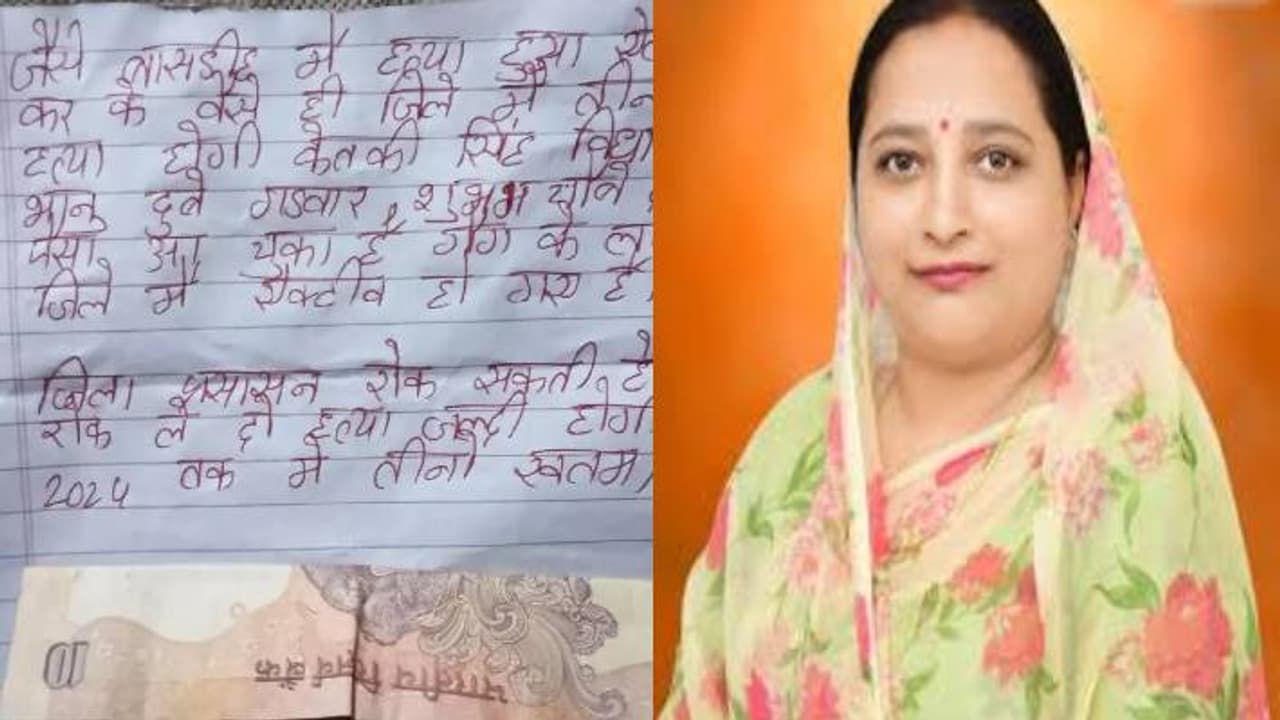 जैसे लासडीह में हत्या हुआ
कर के वैसे ही जिले में तीन
हत्या होगी केतकी सिंह विधा
भानु दुबे गडवार, शुभम
पैसा आ चुका है, गैंग के ल
जिले में ऐक्टीव हो गए है
जिला प्रसासन रोक सकती है
रोक ले दो हत्या जल्दी होगी
2024 तक में तीनो खतम
10
भारतीय रिज़र्व बैंक